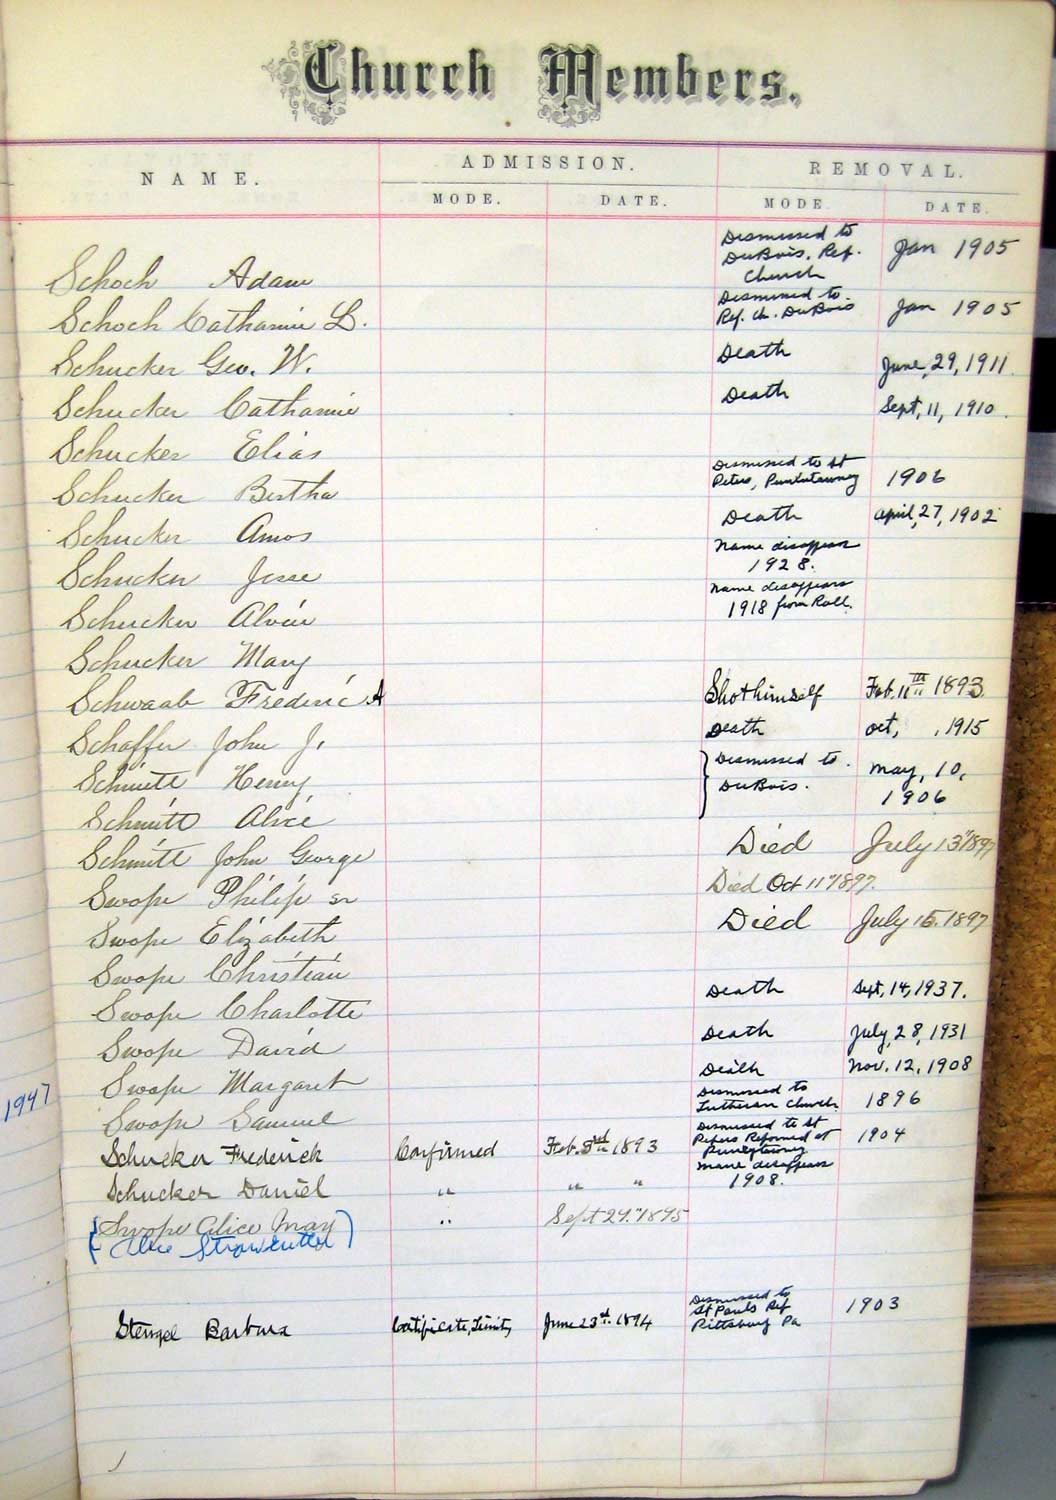 Church Members.
NAME. ADMISSION. REMOVAL.
MODE. DATE. MODE DATE.
Dismissed to
DuBois, Ref. Jan 1905
Schoch Adam Church
Dismissed to
Schoch Catharine L. Ref. Ch. DuBois Jan 1905
Schucker Geo. W. Death June, 29, 1911.
Schucker Catharine Death Sept, 11, 1910.
Schucker Elias
Dismissed to St
Schucker Bertha Peters, Punxutawney 1906
Schucker Amos Death April, 27, 1902
Name disappears
Schucker Jesse 1928.
Name disappears
Schucker Alvin 1918 from Roll.
Schucker Mary
Schwaab Frederic A Shot himself Feb. 11th 1893
Schaffer John J. Death Oct, , 1915
Schmitt Henry Dismissed to May, 10,
Schmitt Alice DuBois. 1906
Schmitt John George Died July 13" 1897
Swope Philip sr Died Oct 11" 1897.
Swope Elizabeth Died July 15. 1897
Swope Christian
Swope Charlotte Death Sept, 14, 1937.
Swope David Death July, 28, 1931
Swope Margaret Death Nov. 12, 1908
1947
Dismissed to
Swope Samuel Lutheran Church 1896
Dismissed to St
Schucker Frederick Confirmed Feb. 1893 Peters Reformed at 1904
Punxytawney
Name disappears
Schucker Daniel " " " 1908.
(Swope Alice May " Sept 29." 1895
(Alice Strawcutter)
Dismissed to
St Pauls Ref 1903
Stengel Barbara Certificate, Trinity June 23rd. 1894 Pittsburg Pa